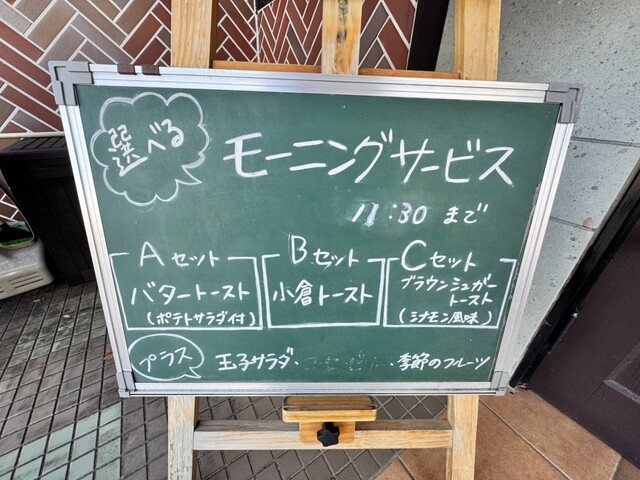 選べる
モーニングサービス
11:30 まで
Aセット
バタートースト
(ポテトサラダ付)
Bセット
小倉トースト
Cセット
ブラウンシュガー
トースト
(シナモン風味)
プラス
玉子サラダ・
・季節のフルーツ